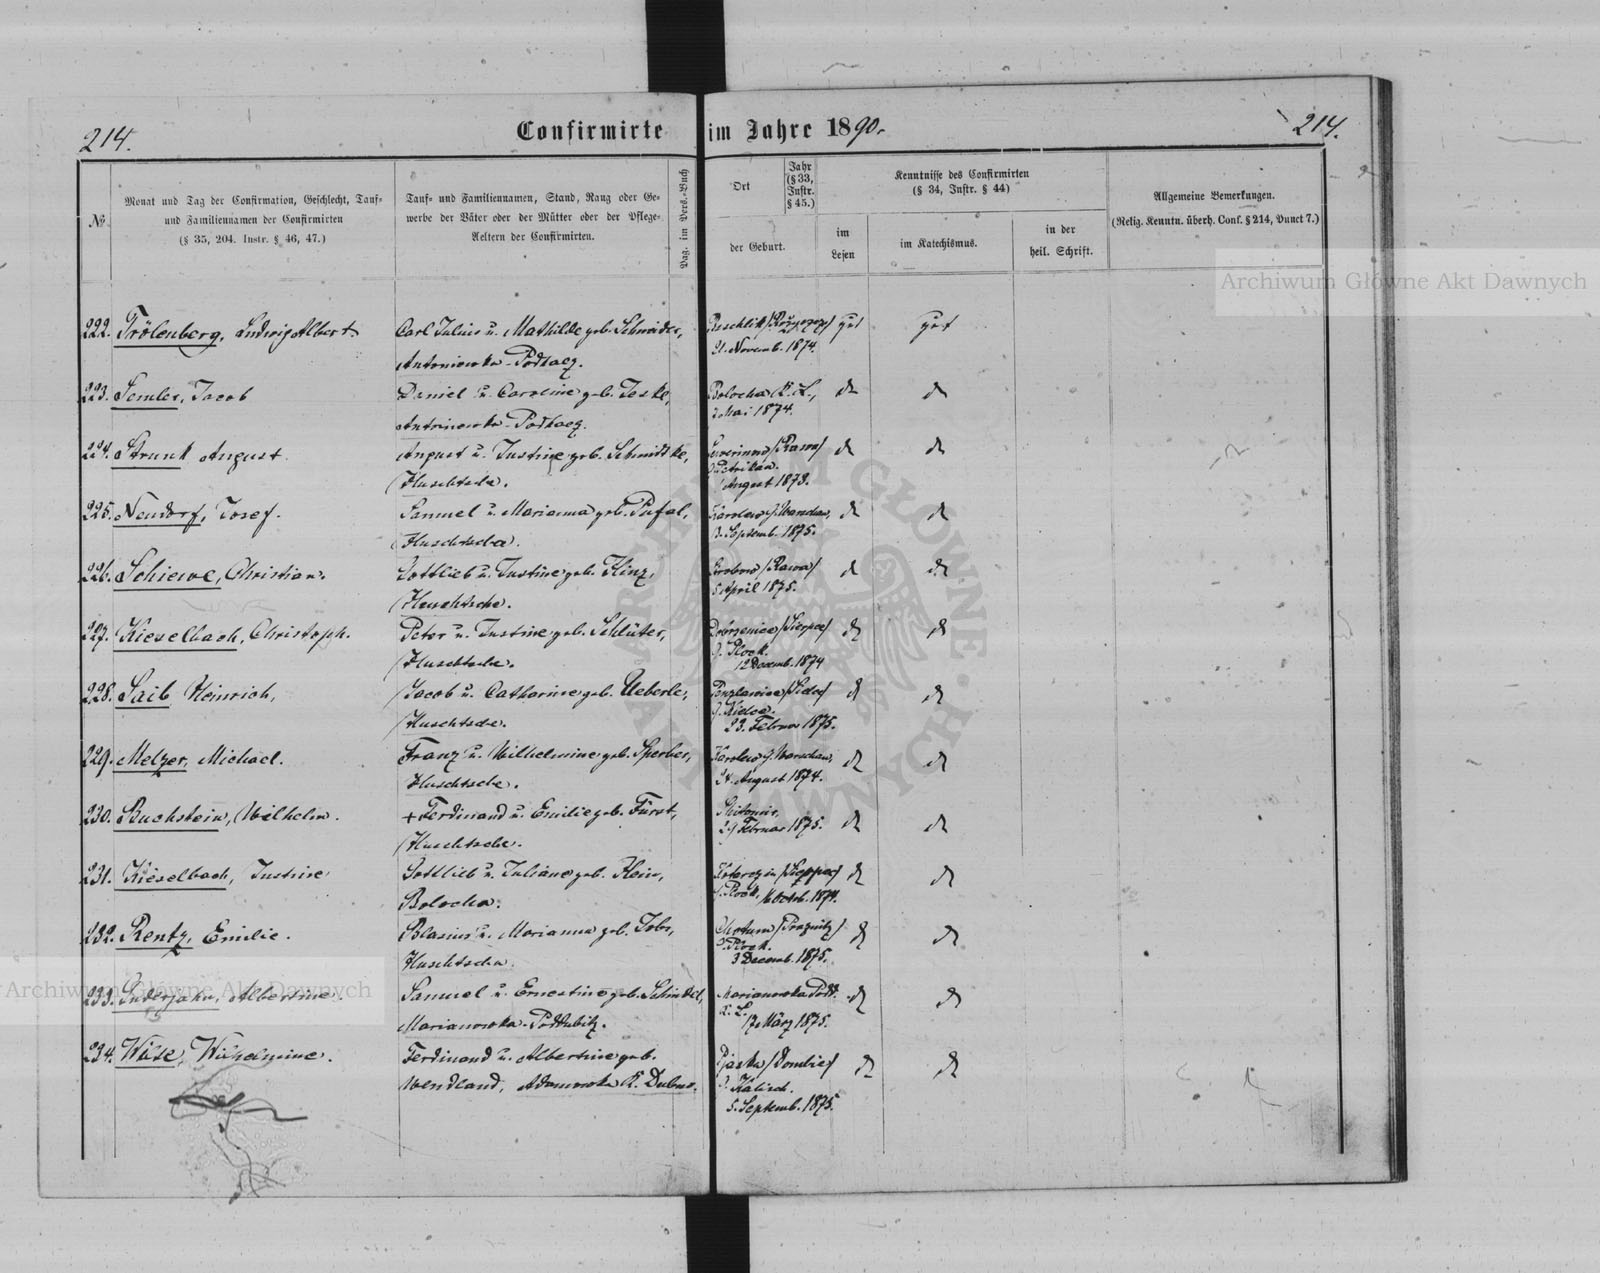 214.
Confirmirte im Jahre 1890.
214.
№
Monat und Tag der Confirmation, Geschlecht, Tauf-
und Familiennamen der Confirmirten
(§ 35, 204. Instr. § 46, 47.)
Tauf- und Familiennamen, Stand, Rang oder Ge-
werbe der Väter oder der Mütter oder der Pflege-
Aeltern der Confirmirten.
Pag. im Pers.-Buch
Ort
der Geburt.
Jahr
(§ 33,
Instr.
§ 45.)
Kenntnisse des Confirmirten
(§ 34, Instr. § 44)
im
Lesen
im Katechismus.
in der
heil. Schrift.
Allgemeine Bemerkungen.
(Relig. Kenntn. überh. Conf. § 214, Punct 7.)
Archiwum Główne Akt Dawnych
222. Frölenberg, Ludwig Albert
Carl Julius u. Mathilde geb. Schneider,
Antoniowka-Podhaez.
21. Novemb. 1874.
gut
gut
223. Semler, Jacob
Daniel u. Caroline geb. Jeske,
Antoniowka-Podhaez.
Bolocha K. L.,
Mai 1874.
do
do
224. Strunk August
August u. Justine geb. Schmidtke,
Huschtscha.
/Rawa/
G. Petrikau.
August 1873.
do
do
225. Neudorf, Josef.
Samuel u. Marianna geb. Pufal,
Huschtscha.
Karolew G. Warschau,
Septemb. 1875.
do
do
226. Schiewe, Christian.
Gottlieb u. Justine geb. Hinz,
Huschtscha.
/Rawa/
5 April 1875.
do
do
227. Kieselbach, Christoph.
Peter u. Justine geb. Schlüter,
Huschtscha.
/Sierpce/
G. Plock.
12 Decemb. 1874
do
do
228. Saib Heinrich,
Jacob u. Catharine geb. Ueberle,
Huschtscha.
G. Kielce.
23. Februar 1875.
do
do
229. Melzer, Michael.
Franz u. Wilhelmine geb. Sperber,
Huschtscha.
Karolew G. Warschau,
24. August 1874.
do
do
230. Buchstein, Wilhelm.
+ Ferdinand u. Emilie geb. Fürst,
Huschtscha.
Shitomir,
29 Februar 1875.
do
do
231. Kieselbach, Justine
Gottlieb u. Juliane geb. Klein,
Bolocha.
G. Plock, 16 Octob. 1874.
do
do
232. Rentz, Emilie.
Blasius u. Marianna geb. Jobs,
Huschtscha.
G. Plock.
3 Decemb. 1875.
do
do
Archiwum Główne Akt Dawnych
233. Guderjahn, Albertine.
Samuel u. Ernestine geb. Schindel,
Marianowka-Poddubitz.
Marianowka Podd.
K. L.
17 März 1875.
do
do
234. Wilse, Wilhelmine.
Ferdinand u. Albertine geb.
Wendland, Adamowka K. Dubno.
G. Kalisch.
5. Septemb. 1875.
do
do
ARCHIWUM GŁÓWNE AKT DAWNYCH